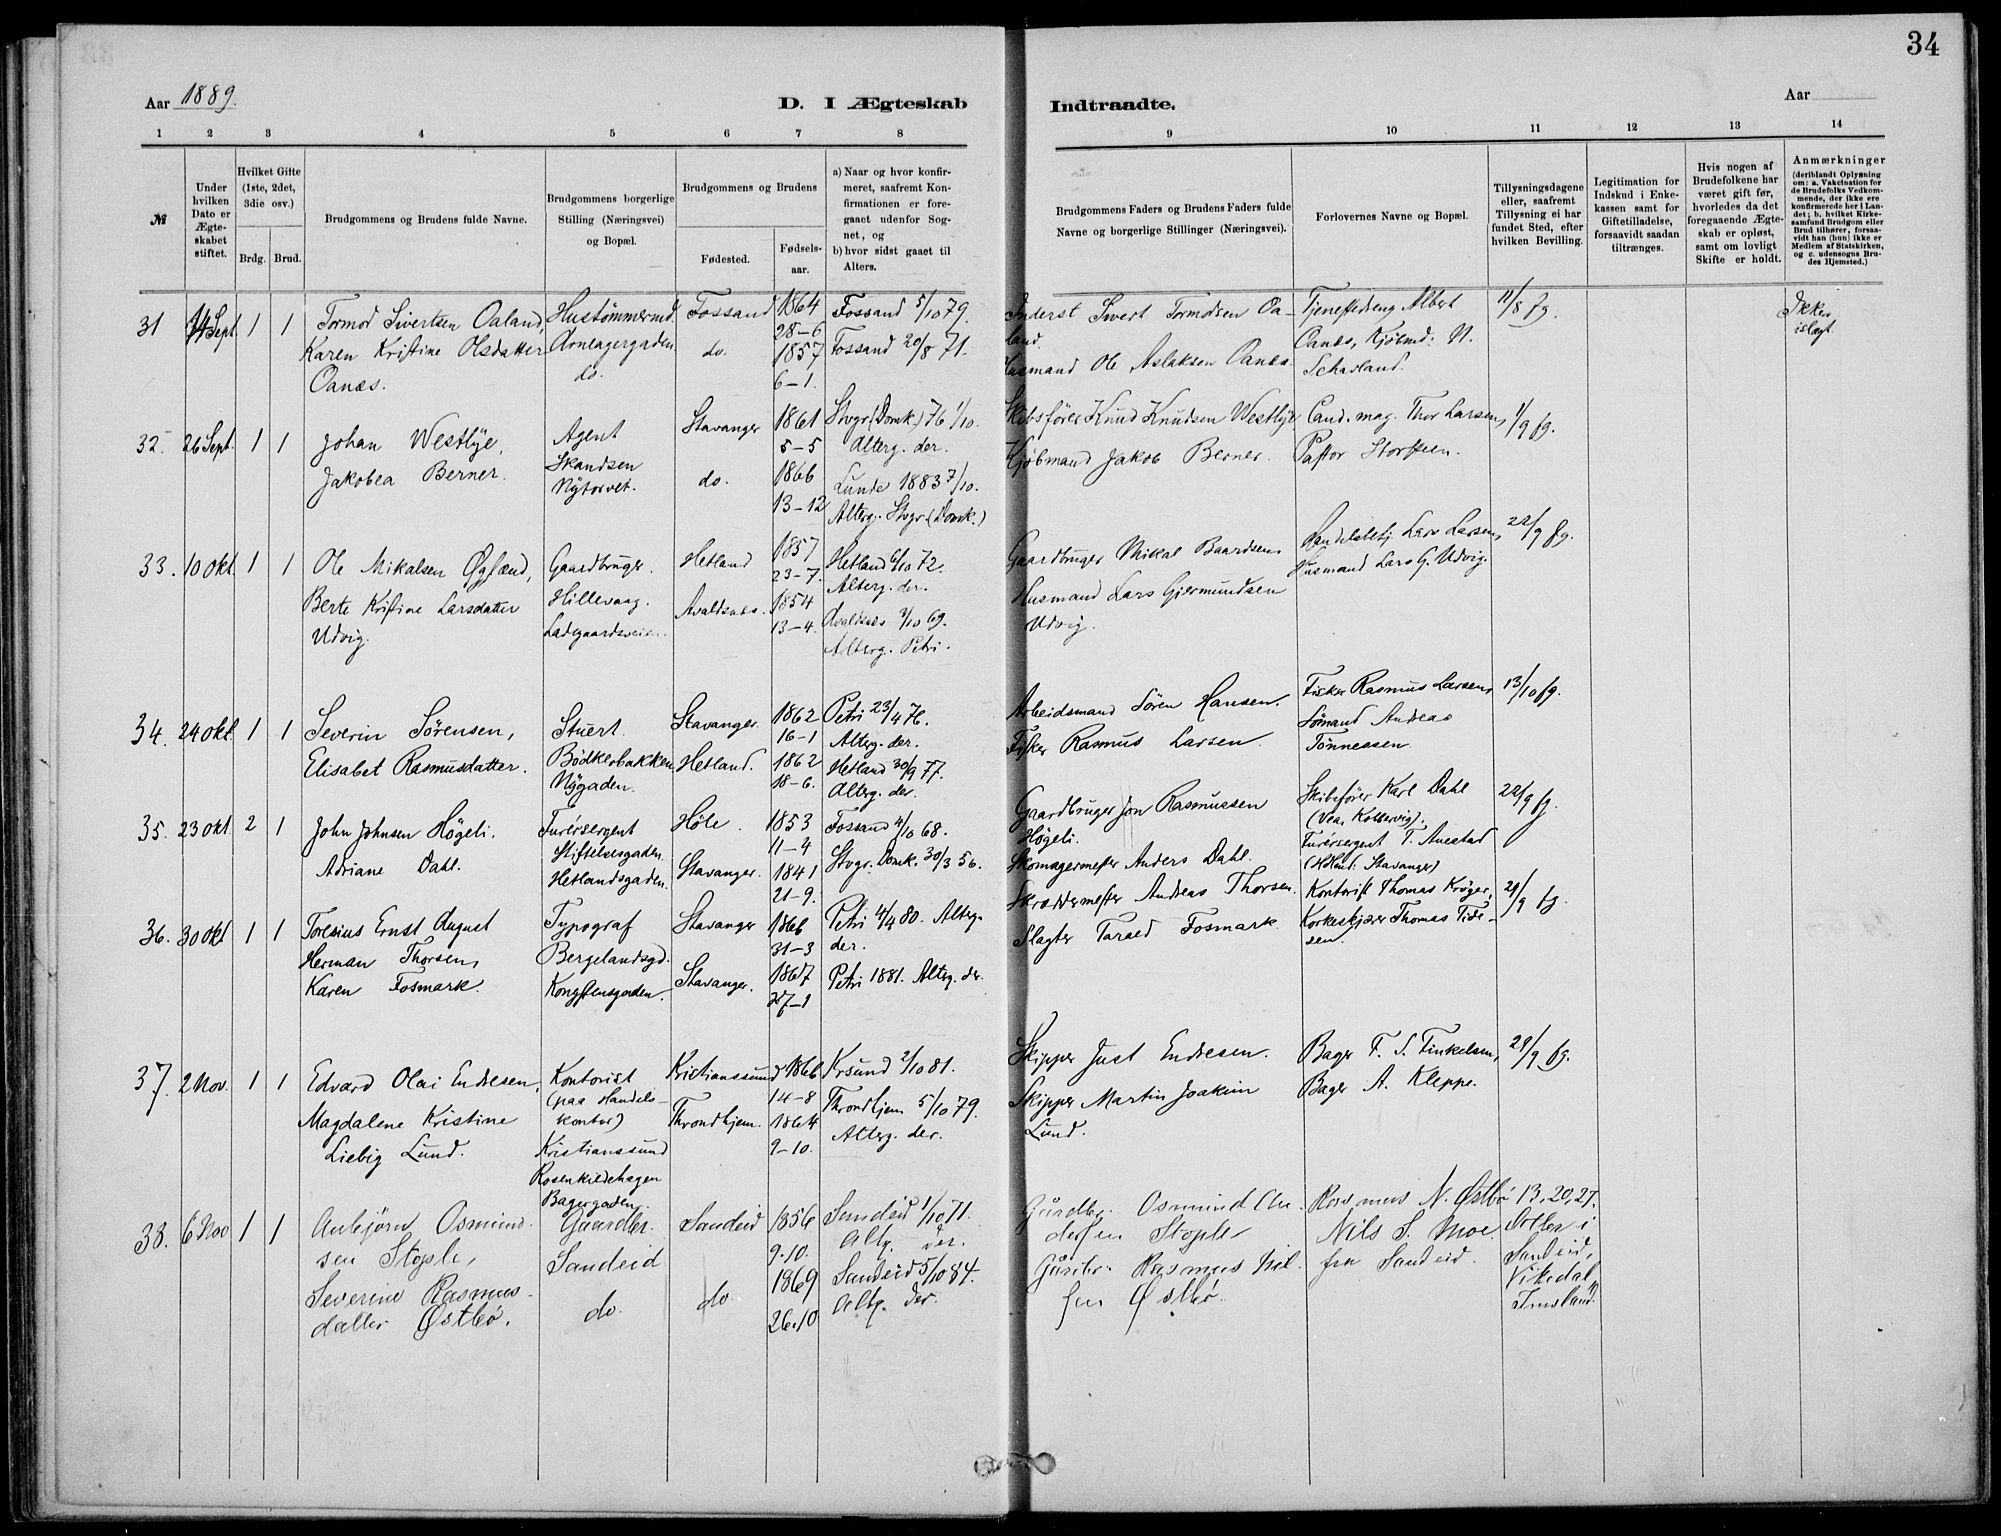 34
Aar 1889.
D. I Ægteskab
Indtraadte.
Aar
1 2 3 4 5 6 7 8 9 10 11 12 13 14
№
Under
hvilken
Dato er
Ægte-
skabet
stiftet.
Hvilket Gifte
(1ste, 2det,
3die osv.)
Brdg. Brud.
Brudgommens og Brudens fulde Navne.
Brudgommens borgerlige
Stilling (Næringsvei)
og Bopæl.
Brudgommens og Brudens
Fødested.
Fødsels-
aar.
a) Naar og hvor konfir-
meret, saafremt Kon-
firmationen er fore-
gaaet udenfor Sog-
net, og
b) hvor sidst gaaet til
Alters.
Brudgommens Faders og Brudens Faders fulde
Navne og borgerlige Stillinger (Næringsvei).
Forlovernes Navne og Bopæl.
Tillysningsdagene
eller, saafremt
Tillysning ei har
fundet Sted, efter
hvilken Bevilling.
Legitimation for
Indskud i Enke-
kassen samt for
Giftetilladelse,
forsaavidt saadan
tiltrænges.
Hvis nogen af
Brudefolkene har
været gift før,
hvorledes da det
foregaaende Ægte-
skab er opløst,
samt om lovligt
Skifte er holdt.
Anmærkninger
(deriblandt Oplysning
om: a. Vakcination for
de Brudefolks Vedkom-
mende, der ikke ere
konfirmerede her i Lan-
det; b. hvilket Kirke-
samfund Brudgom eller
Brud tilhører, forsaa-
vidt han (hun) ikke er
Medlem af Statskirken,
og c. udensogns Bru-
des Hjemsted.)
31 14 Sept 1 1
Tormod Sivertsen Oaland,
Karen Kristine Olsdatter
Oanæs.
Hustømmermd.
Arnlagergaden
do.
Fossand
do.
1864
28-6
1857
6-1.
Fossand 5/10 79.
Fossand 20/8 71.
Inderst Sivert Tormodsen Oa-
land.
Husmand Ole Aslaksen Oanæs.
Tjenestedreng Albert
Oanæs, Kjøbmd: N.
11/8 fg.
Ikke
islægt.
32. 26 Sept. 1 1
Johan Westlye,
Jakobea Berner.
Agent
Skandsen
Nytorvet.
Stavanger
do.
1861
5-5
1866
13-12
Stvgr. (Domk.) 76 1/10.
Alterg. der.
Lunde 1883 7/10.
Alterg. Stvgr. (Domk.)
Skibsfører Knud Knudsen Westlye
Kjøbmand Jakob Berner.
Cand. mag. Thor Larsen,
Pastor Storsteen.
1/9 fg.
33. 10 Okt. 1 1
Ole Mikalsen Øglænd,
Berte Kristine Larsdatter
Udvig.
Gaardbruger.
Hillevaag.
Ladegaardsveien.
Hetland
Avaldsnes.
1857
23-7.
1854
13-4.
Hetland 6/10 72.
Alterg. der.
Avaldsnes 3/10 69.
Alterg. Petri.
Gaardbruger Mikal Baardsen,
Husmand Lars Gjermundsen
Udvig.
Handelsbetj. Lars Larsen,
Husmand Lars G. Udvig.
22/9 fg.
34. 24 Okt. 1 1
Severin Sørensen,
Elisabet Rasmusdatter.
Stuert.
Bødkerbakken
Nygaden.
Stavanger.
Hetland.
1862
16-1
1862
18-6.
Petri 23/4 76.
Alterg. der.
Hetland 30/9 77.
Alterg. der.
Arbeidsmand Sören Hansen.
Fisker Rasmus Larsen.
Fisker Rasmus Larsen,
Sömand Andreas
Tönnessen.
13/10 fg.
35. 23 Okt. 2 1
John Johnsen Högeli.
Adriane Dahl.
Furérsergent
Stiftelsesgaden
Hetlandsgaden.
Høle.
Stavanger.
1853
11-4
1841
21-9.
Fossand 4/10 68.
Stvgr. Domk. 30/3 56.
Gaardbruger Jon Rasmussen
Högeli.
Skomagermester Anders Dahl.
Skibsfører Karl Dahl
Furérsergent T. Auestad
22/9 fg.
36. 30 Okt 1 1
Toresius Ernst August
Herman Thorsen,
Karen Fosmark.
Typograf
Bergelandsgd.
Kongstensgaden.
Stavanger
Stavanger.
1866
31-3
1867
27-1
Petri 4/4 80. Alterg.
der.
Petri 1881. Alterg. der.
Skræddermester Andreas Thorsen.
Slagter Taraed Fosmark.
Kontorist Thomas Krøger,
Korkeskjærer Thomas Tide-
sen.
29/9 fg.
37. 2 Nov. 1 1
Edvard Olai Endresen,
Magdalene Kristine
Liebig Lund.
Kontorist
(paa Handels-
kontor)
Kristianssund
Rosenkildehagen
Bagergaden.
Kristianssund
Throndhjem.
1866
14-8
1864
9-10.
Krsund 2/10 81.
Throndhjem 5/10 79.
Alterg. der.
Skipper Just Endresen.
Skipper Martin Joakim
Lund.
Bager F. S. Finkelsen,
Bager A. Kleppe.
29/9 fg.
38. 6 Nov 1 1
Anbjörn Osmund-
sen Stople,
Severine Rasmus-
datter Østbö.
Gaardbr.
Sandeid
do.
Sandeid
do.
1856
9.10.
1869
26.10
Sandeid 1/10 71.
Altg. der.
Sandeid 5/10 84.
Altg. der.
Gårdbr. Osmund An-
dersen Stople
Gårdbr. Rasmus Nil-
sen Østbö.
Rasmus N. Østbö
Nils S. Moe
fra Sandeid.
13, 20, 27.
Octbr i
Sandeid,
Vikedal,
Imsland.